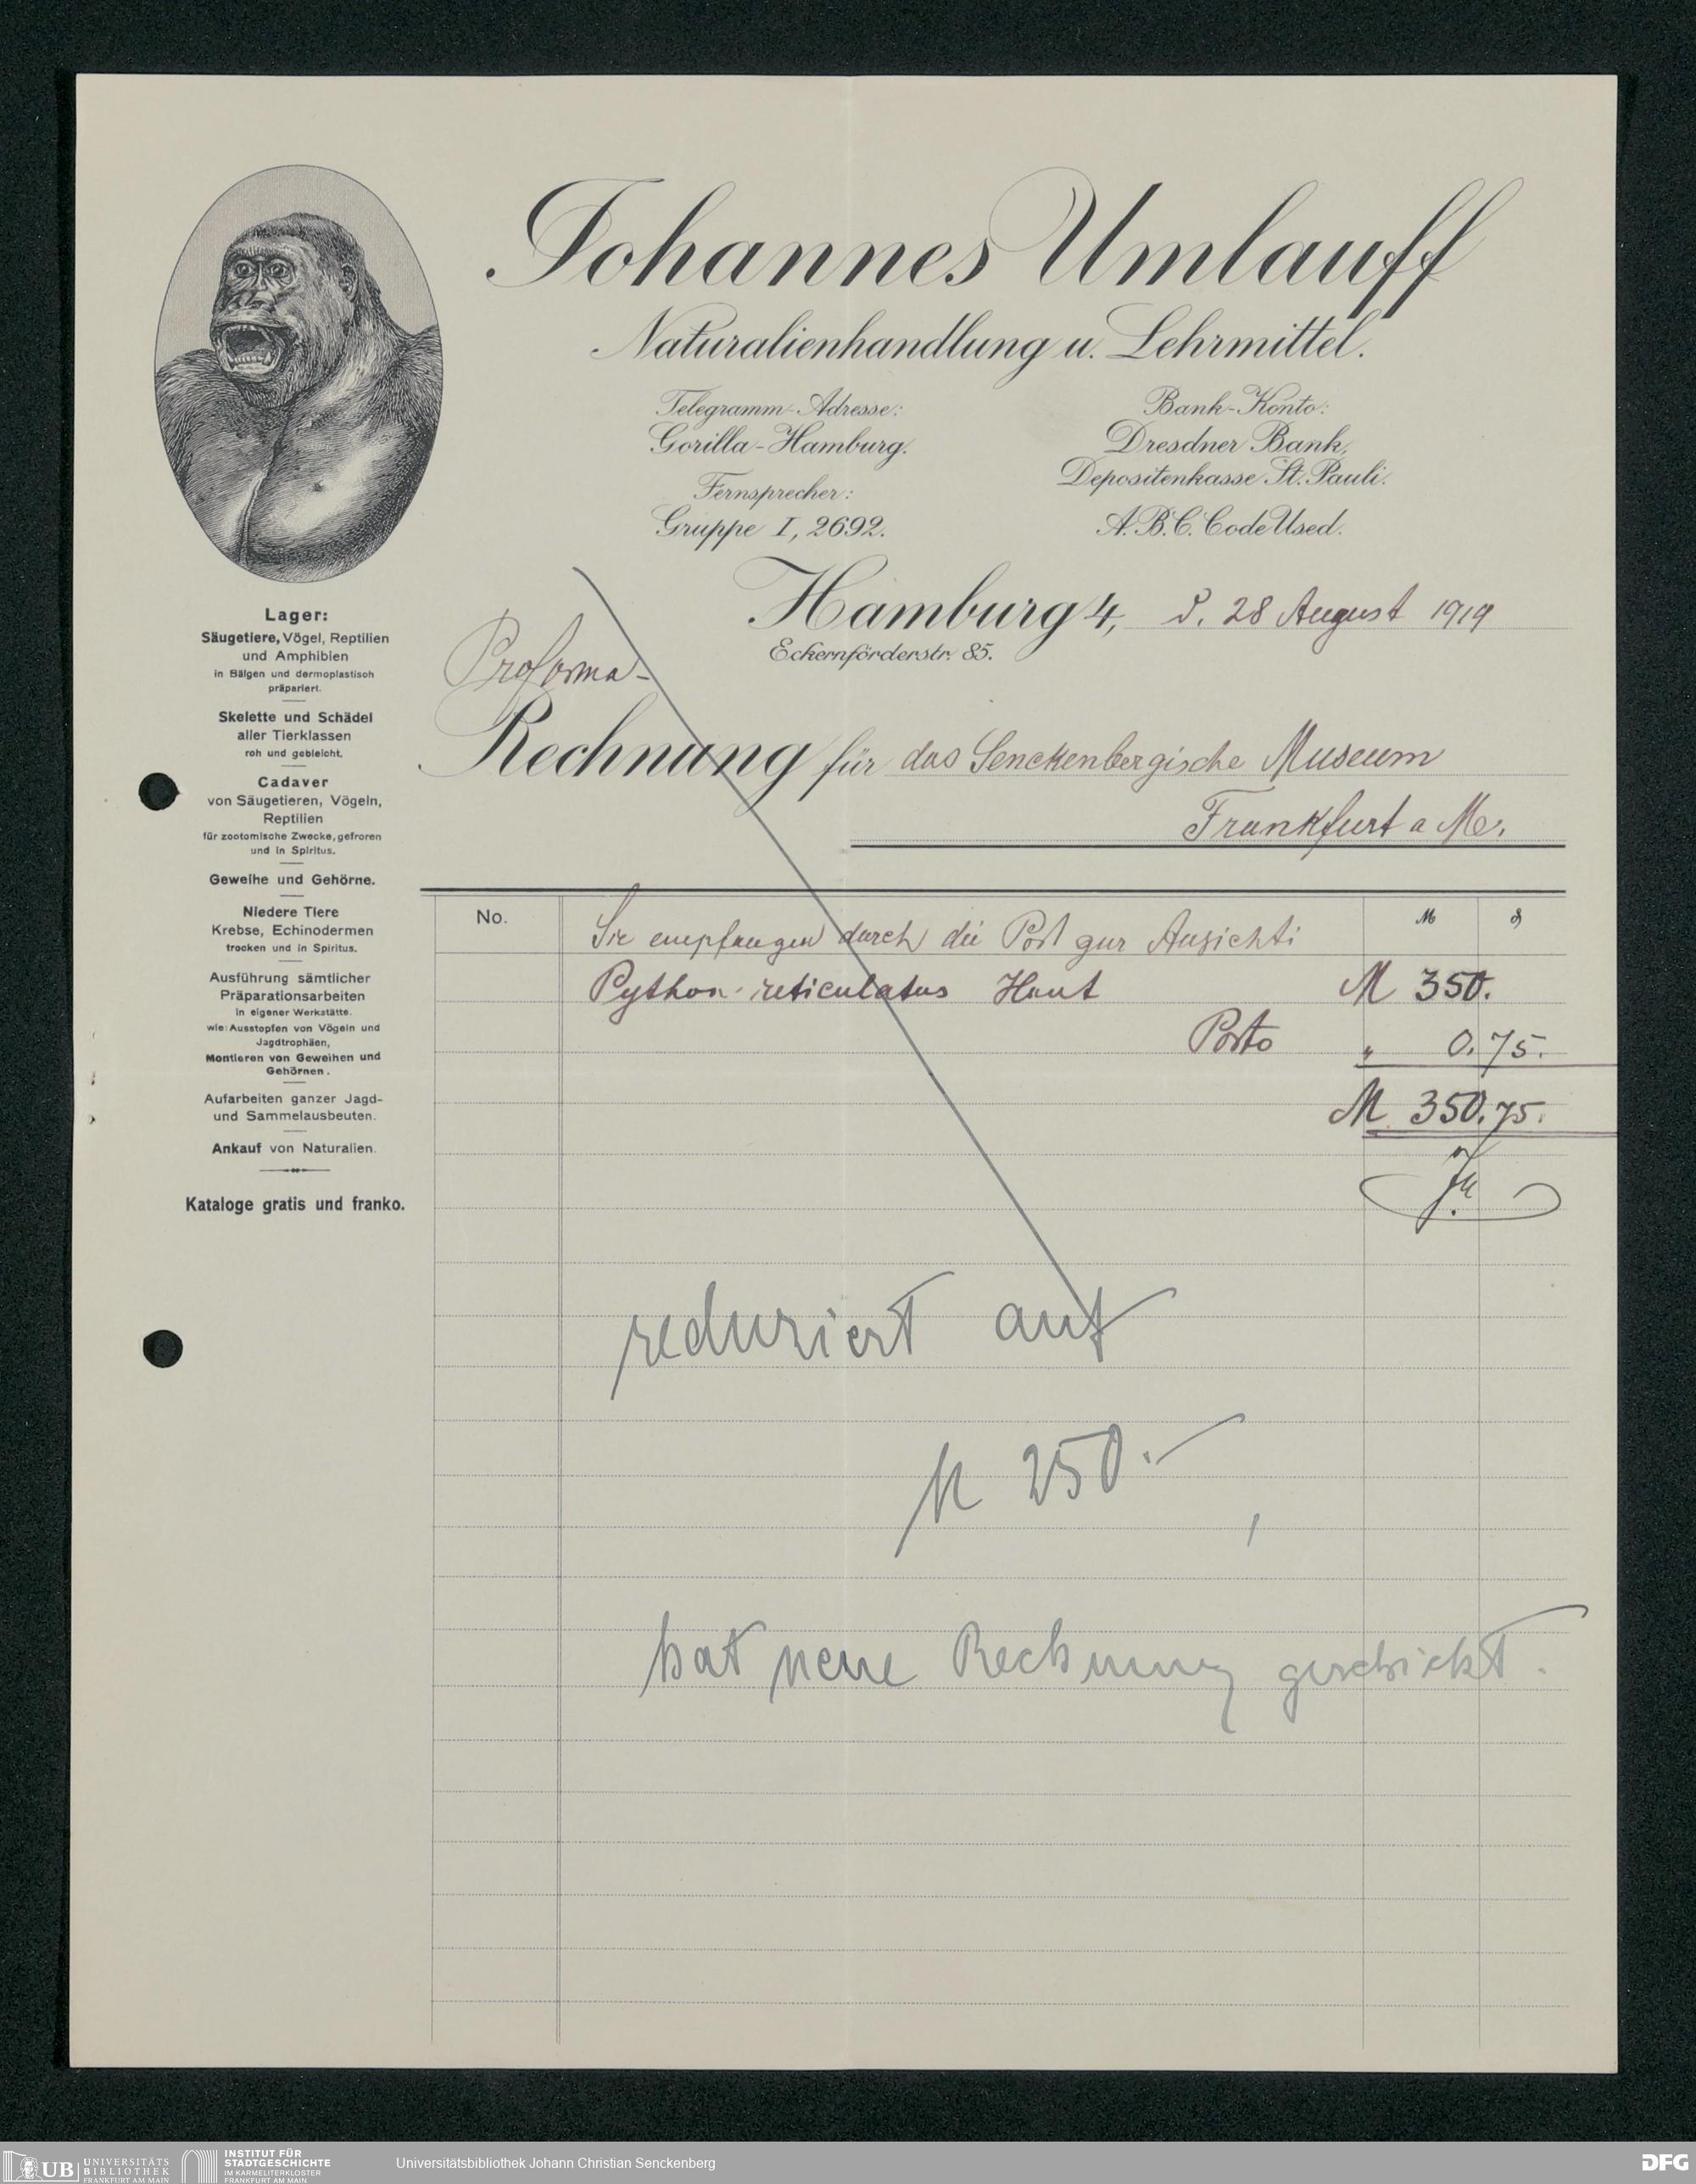 Johannes Umlauff
Naturalienhandlung u. Lehrmittel.
Telegramm-Adresse:
Gorilla-Hamburg.
Fernsprecher:
Gruppe I, 2692.
Bank-Konto:
Dresdner Bank,
Depositenkasse St. Pauli.
A.B.C. Code Used.
Hamburg 4, d. 28 August 1919
Eckernförderstr. 85.
Proforma-
Rechnung für das Senckenbergische Museum
Frankfurt a M.
Lager:
Säugetiere, Vögel, Reptilien
und Amphibien
in Bälgen und dermoplastisch
präpariert.
Skelette und Schädel
aller Tierklassen
roh und gebleicht.
Cadaver
von Säugetieren, Vögeln,
Reptilien
für zootomische Zwecke, gefroren
und in Spiritus.
Geweihe und Gehörne.
Niedere Tiere
Krebse, Echinodermen
trocken und in Spiritus.
Ausführung sämtlicher
Präparationsarbeiten
in eigener Werkstätte.
wie: Ausstopfen von Vögeln und
Jagdtrophäen,
Montieren von Geweihen und
Gehörnen.
Aufarbeiten ganzer Jagd-
und Sammelausbeuten.
Ankauf von Naturalien.
Kataloge gratis und franko.
No.
M ₰
Sie empfangen durch die Post zur Ansicht:
Python reticulatus Haut M 350.
Porto " 0.75.
M 350.75.
reduziert auf
M 250.-
hat neue Rechnung geschickt.
UB UNIVERSITÄTS
BIBLIOTHEK
FRANKFURT AM MAIN
INSTITUT FÜR
STADTGESCHICHTE
IM KARMELITERKLOSTER
FRANKFURT AM MAIN
Universitätsbibliothek Johann Christian Senckenberg
DFG